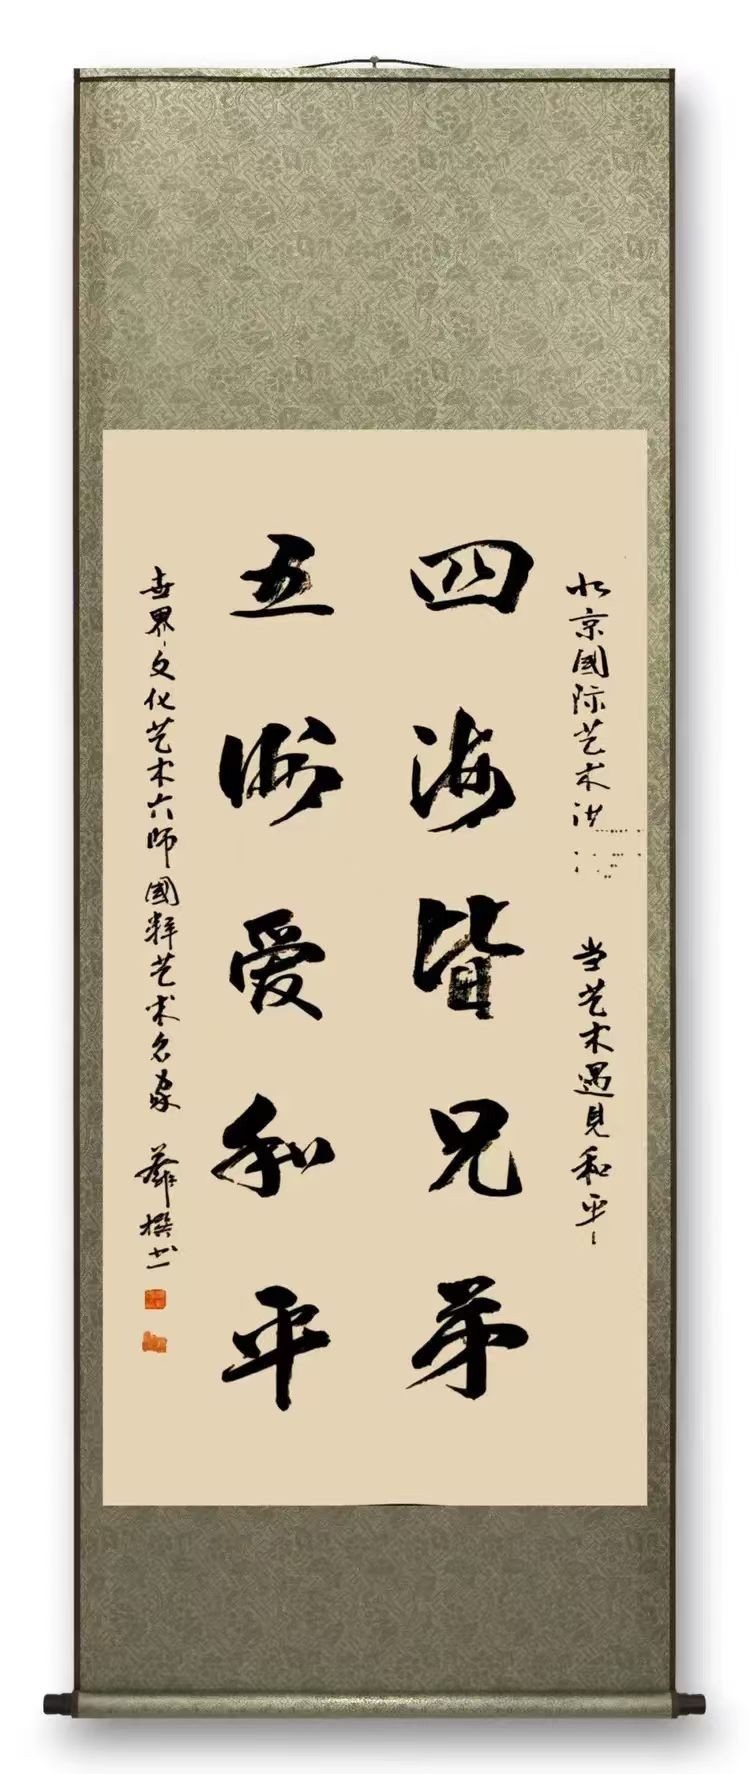 北京國际艺术 当艺术遇见和平
四海皆兄弟
五洲爱和平
世界文化艺术大师國粹艺术名家 撰书